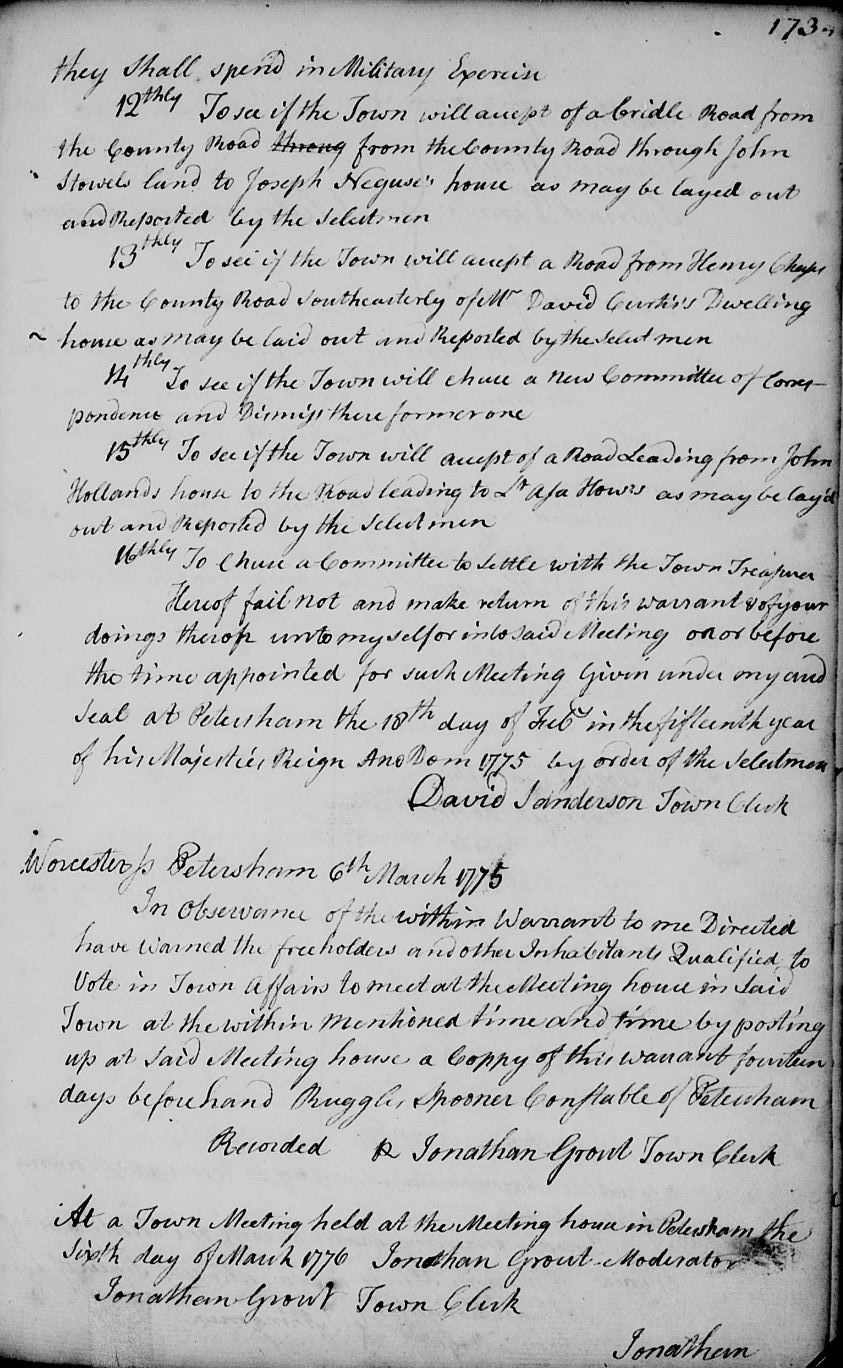 173
they Shall spend in Military Exercise
12thly To see if the Town will accept of a bridle Road from
the County Road throug from the County Road through John
Stowels land to Joseph Neguse's house as may be layed out
and Reported by the Selectmen
13thly To see if the Town will accept a Road from Henry
to the County Road Southeasterly of Mr David Curtis's Dwelling
house as may be laid out and Reported by the Select men
14thly To see if the Town will chuse a New Committee of Corres-
pondence and Dismiss there former one
15thly To see if the Town will accept of a Road Leading from John
Hollands house to the Road leading to Lt Asa How's as may be lay'd
out and Reported by the Select men
16thly To Chuse a Committee to Settle with the Town Treasurer
Hereof fail not and make return of this warrant & of your
doings therof unto myself or into said Meeting on or before
the time appointed for such Meeting Given under my and
Seal at Petersham the 18th day of Feb in the fifteenth year
of his Majesties Reign Ano Dom 1775 by order of the Selectmen
David Sanderson Town Clerk
Worcester Ss Petersham 6th March 1775
In Observance of the within Warrant to me Directed
have Warned the freeholders and other Inhabitants Qualified to
Vote in Town Affairs to meet at the Meeting house in Said
Town at the within Mentioned time and time by posting
up at Said Meeting house a Coppy of this warrant fourteen
days before hand Ruggles Spooner Constable of Petersham
Recorded Jonathan Grout Town Clerk
At a Town Meeting held at the Meeting house in Petersham the
Sixth day of March 1776 Jonathan Grout Moderator
Jonathan Grout Town Clerk
Jonathan